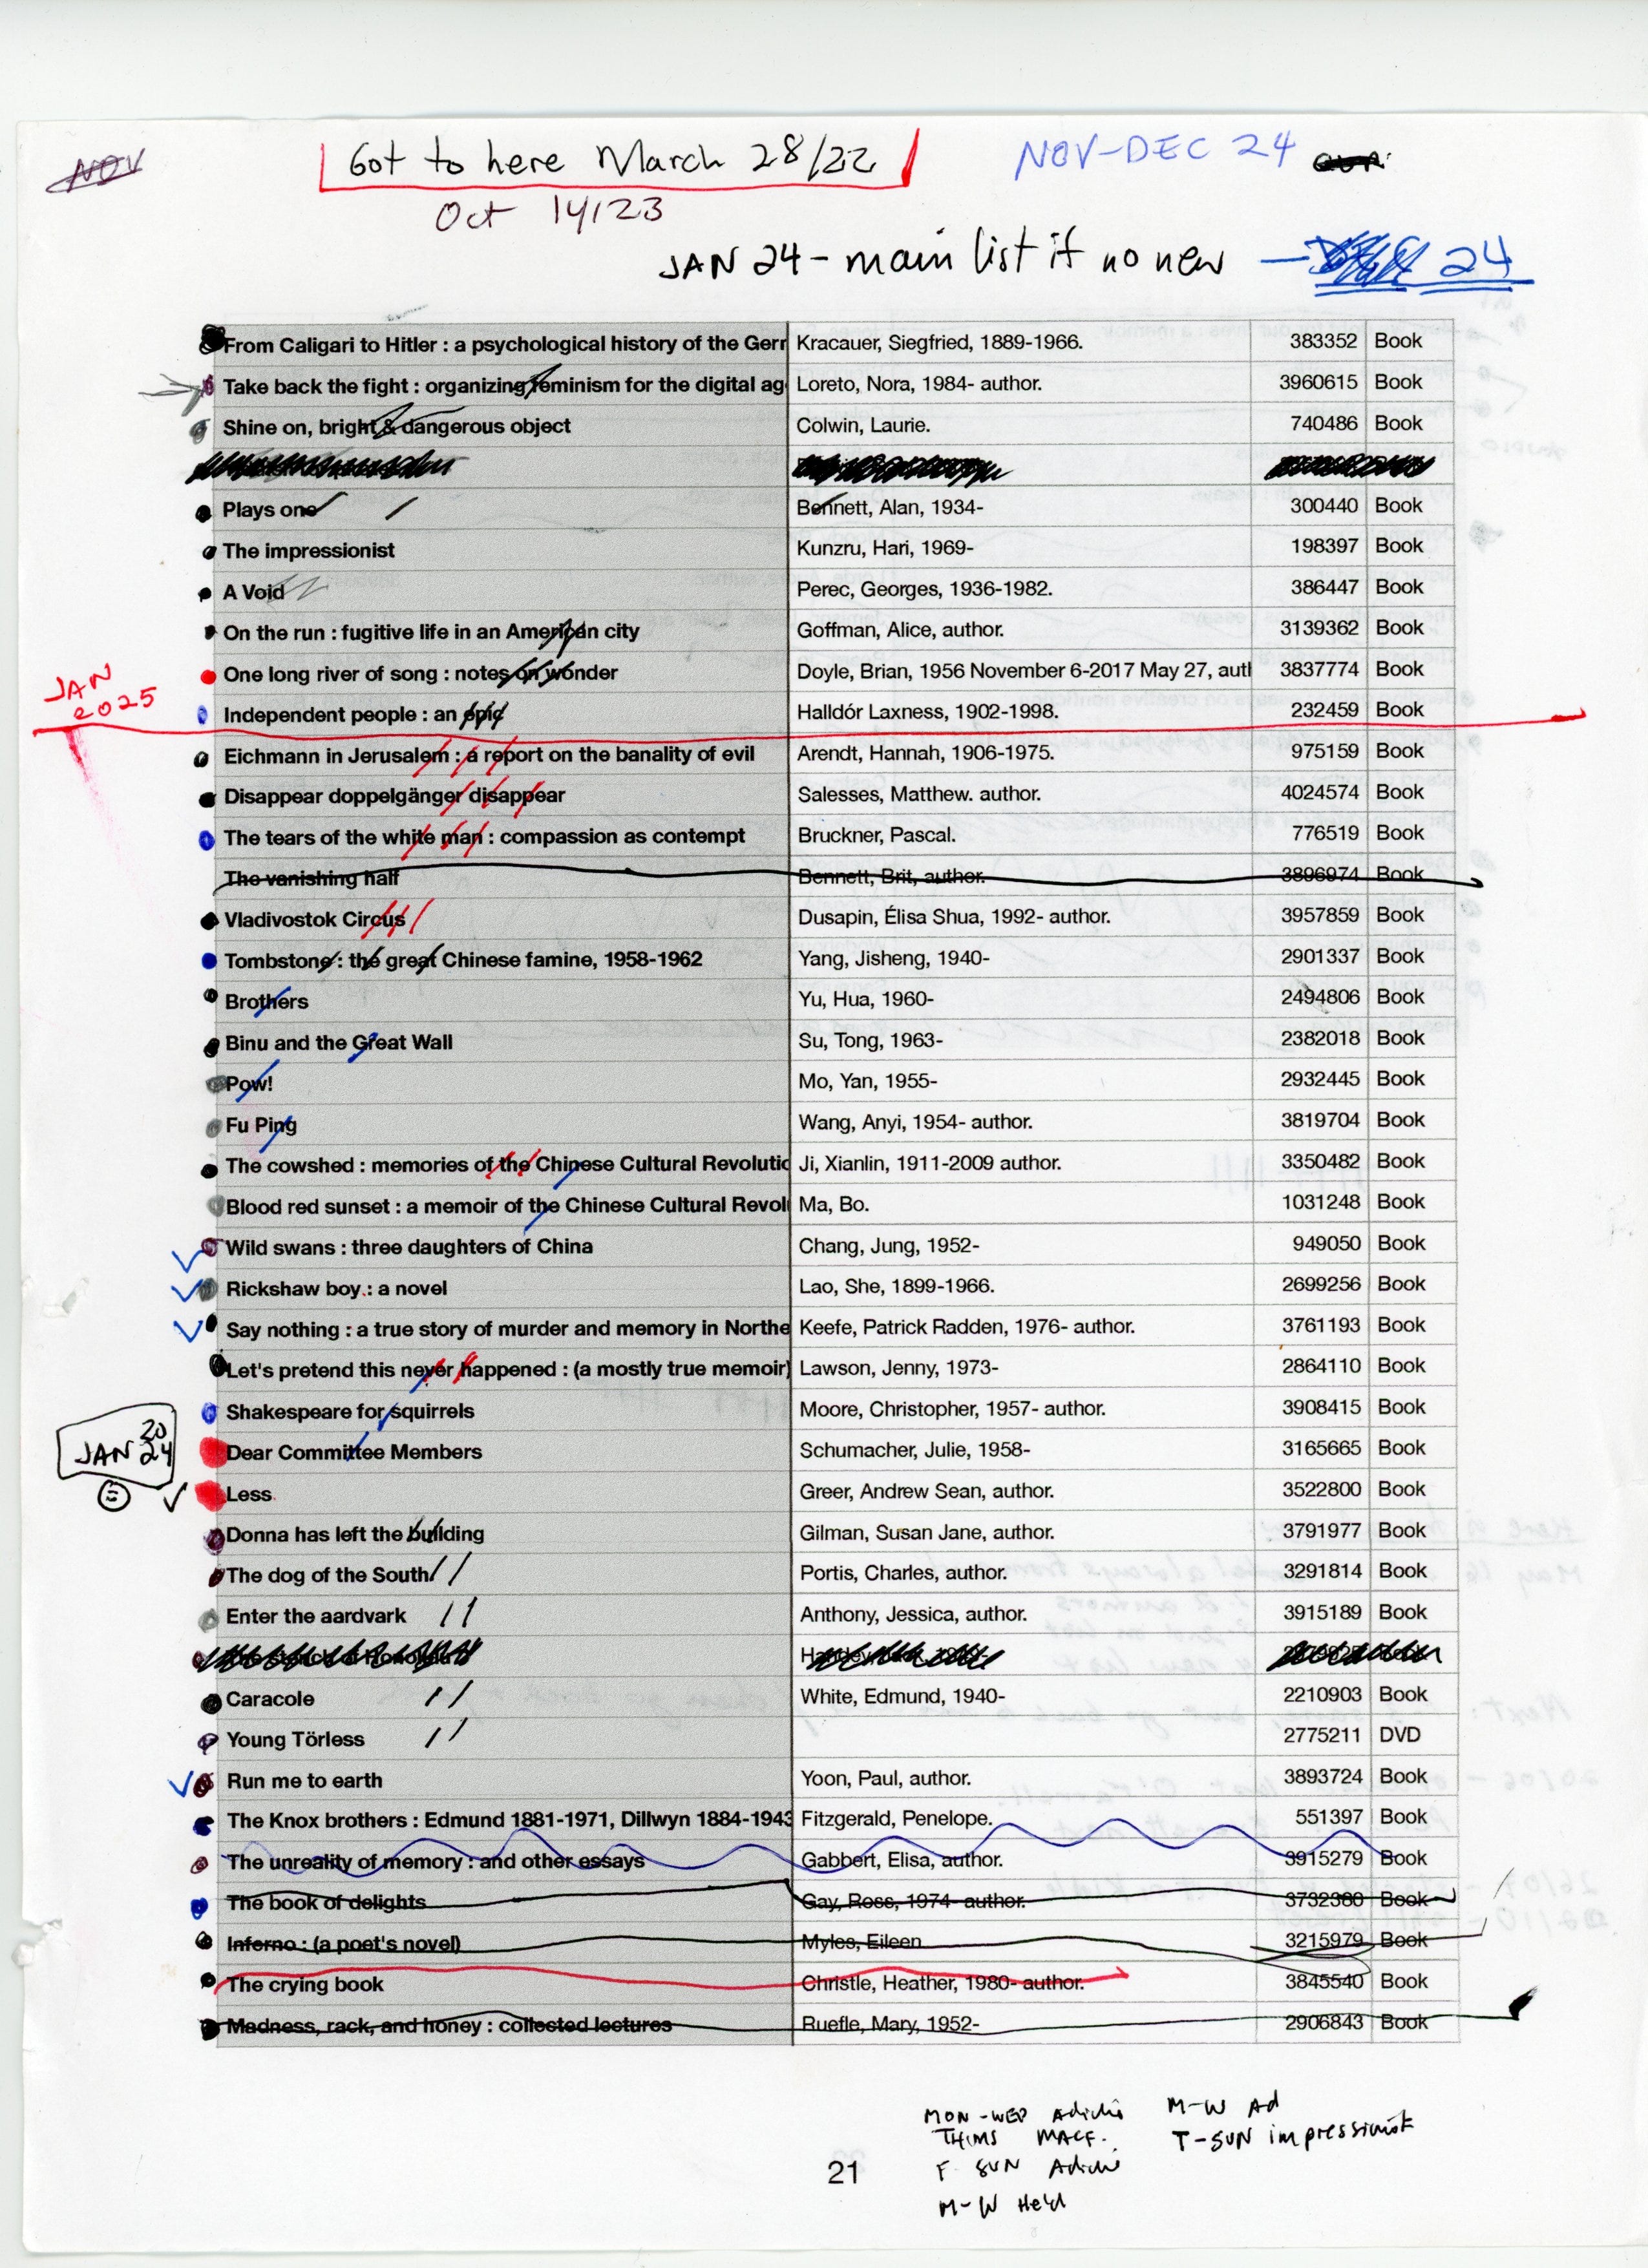 NOV
Got to here March 28/22
NOV-DEC 24
Oct 14/23
JAN 24 - main list if no new — 24
From Caligari to Hitler : a psychological history of the Gerr Kracauer, Siegfried, 1889-1966. 383352 Book
Take back the fight : organizing feminism for the digital ag Loreto, Nora, 1984- author. 3960615 Book
Shine on, bright & dangerous object Colwin, Laurie. 740486 Book
Plays one Bennett, Alan, 1934- 300440 Book
The impressionist Kunzru, Hari, 1969- 198397 Book
A Void Perec, Georges, 1936-1982. 386447 Book
On the run : fugitive life in an American city Goffman, Alice, author. 3139362 Book
One long river of song : notes on wonder Doyle, Brian, 1956 November 6-2017 May 27, autl 3837774 Book
JAN
2025
Independent people : an epic Halldór Laxness, 1902-1998. 232459 Book
Eichmann in Jerusalem : a report on the banality of evil Arendt, Hannah, 1906-1975. 975159 Book
Disappear doppelgänger disappear Salesses, Matthew. author. 4024574 Book
The tears of the white man : compassion as contempt Bruckner, Pascal. 776519 Book
The vanishing half Bennett, Brit, author. 3896974 Book
Vladivostok Circus Dusapin, Élisa Shua, 1992- author. 3957859 Book
Tombstone : the great Chinese famine, 1958-1962 Yang, Jisheng, 1940- 2901337 Book
Brothers Yu, Hua, 1960- 2494806 Book
Binu and the Great Wall Su, Tong, 1963- 2382018 Book
Pow! Mo, Yan, 1955- 2932445 Book
Fu Ping Wang, Anyi, 1954- author. 3819704 Book
The cowshed : memories of the Chinese Cultural Revolutic Ji, Xianlin, 1911-2009 author. 3350482 Book
Blood red sunset : a memoir of the Chinese Cultural Revol Ma, Bo. 1031248 Book
Wild swans : three daughters of China Chang, Jung, 1952- 949050 Book
Rickshaw boy : a novel Lao, She, 1899-1966. 2699256 Book
Say nothing : a true story of murder and memory in Northe Keefe, Patrick Radden, 1976- author. 3761193 Book
Let's pretend this never happened : (a mostly true memoir) Lawson, Jenny, 1973- 2864110 Book
Shakespeare for squirrels Moore, Christopher, 1957- author. 3908415 Book
JAN 2024
Dear Committee Members Schumacher, Julie, 1958- 3165665 Book
Less Greer, Andrew Sean, author. 3522800 Book
Donna has left the building Gilman, Susan Jane, author. 3791977 Book
The dog of the South Portis, Charles, author. 3291814 Book
Enter the aardvark Anthony, Jessica, author. 3915189 Book
Caracole White, Edmund, 1940- 2210903 Book
Young Törless 2775211 DVD
Run me to earth Yoon, Paul, author. 3893724 Book
The Knox brothers : Edmund 1881-1971, Dillwyn 1884-1943 Fitzgerald, Penelope. 551397 Book
The unreality of memory : and other essays Gabbert, Elisa, author. 3915279 Book
The book of delights Gay, Ross, 1974- author. 3732380 Book
Inferno : (a poet's novel) Myles, Eileen 3215979 Book
The crying book Christle, Heather, 1980- author. 3845540 Book
Madness, rack, and honey : collected lectures Ruefle, Mary, 1952- 2906843 Book
MON-WED Adichie M-W Ad
MACF. T-SUN impressionist
F SUN Adichie
M-W Held
21